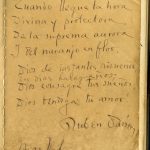 Cuando llegue la hora
Divina y protectora
De la suprema aurora
Y del naranjo en flor,
Dios de instantes risueños
Dios consagre tus sueños
Dios bendiga tu amor
Rubén Darío